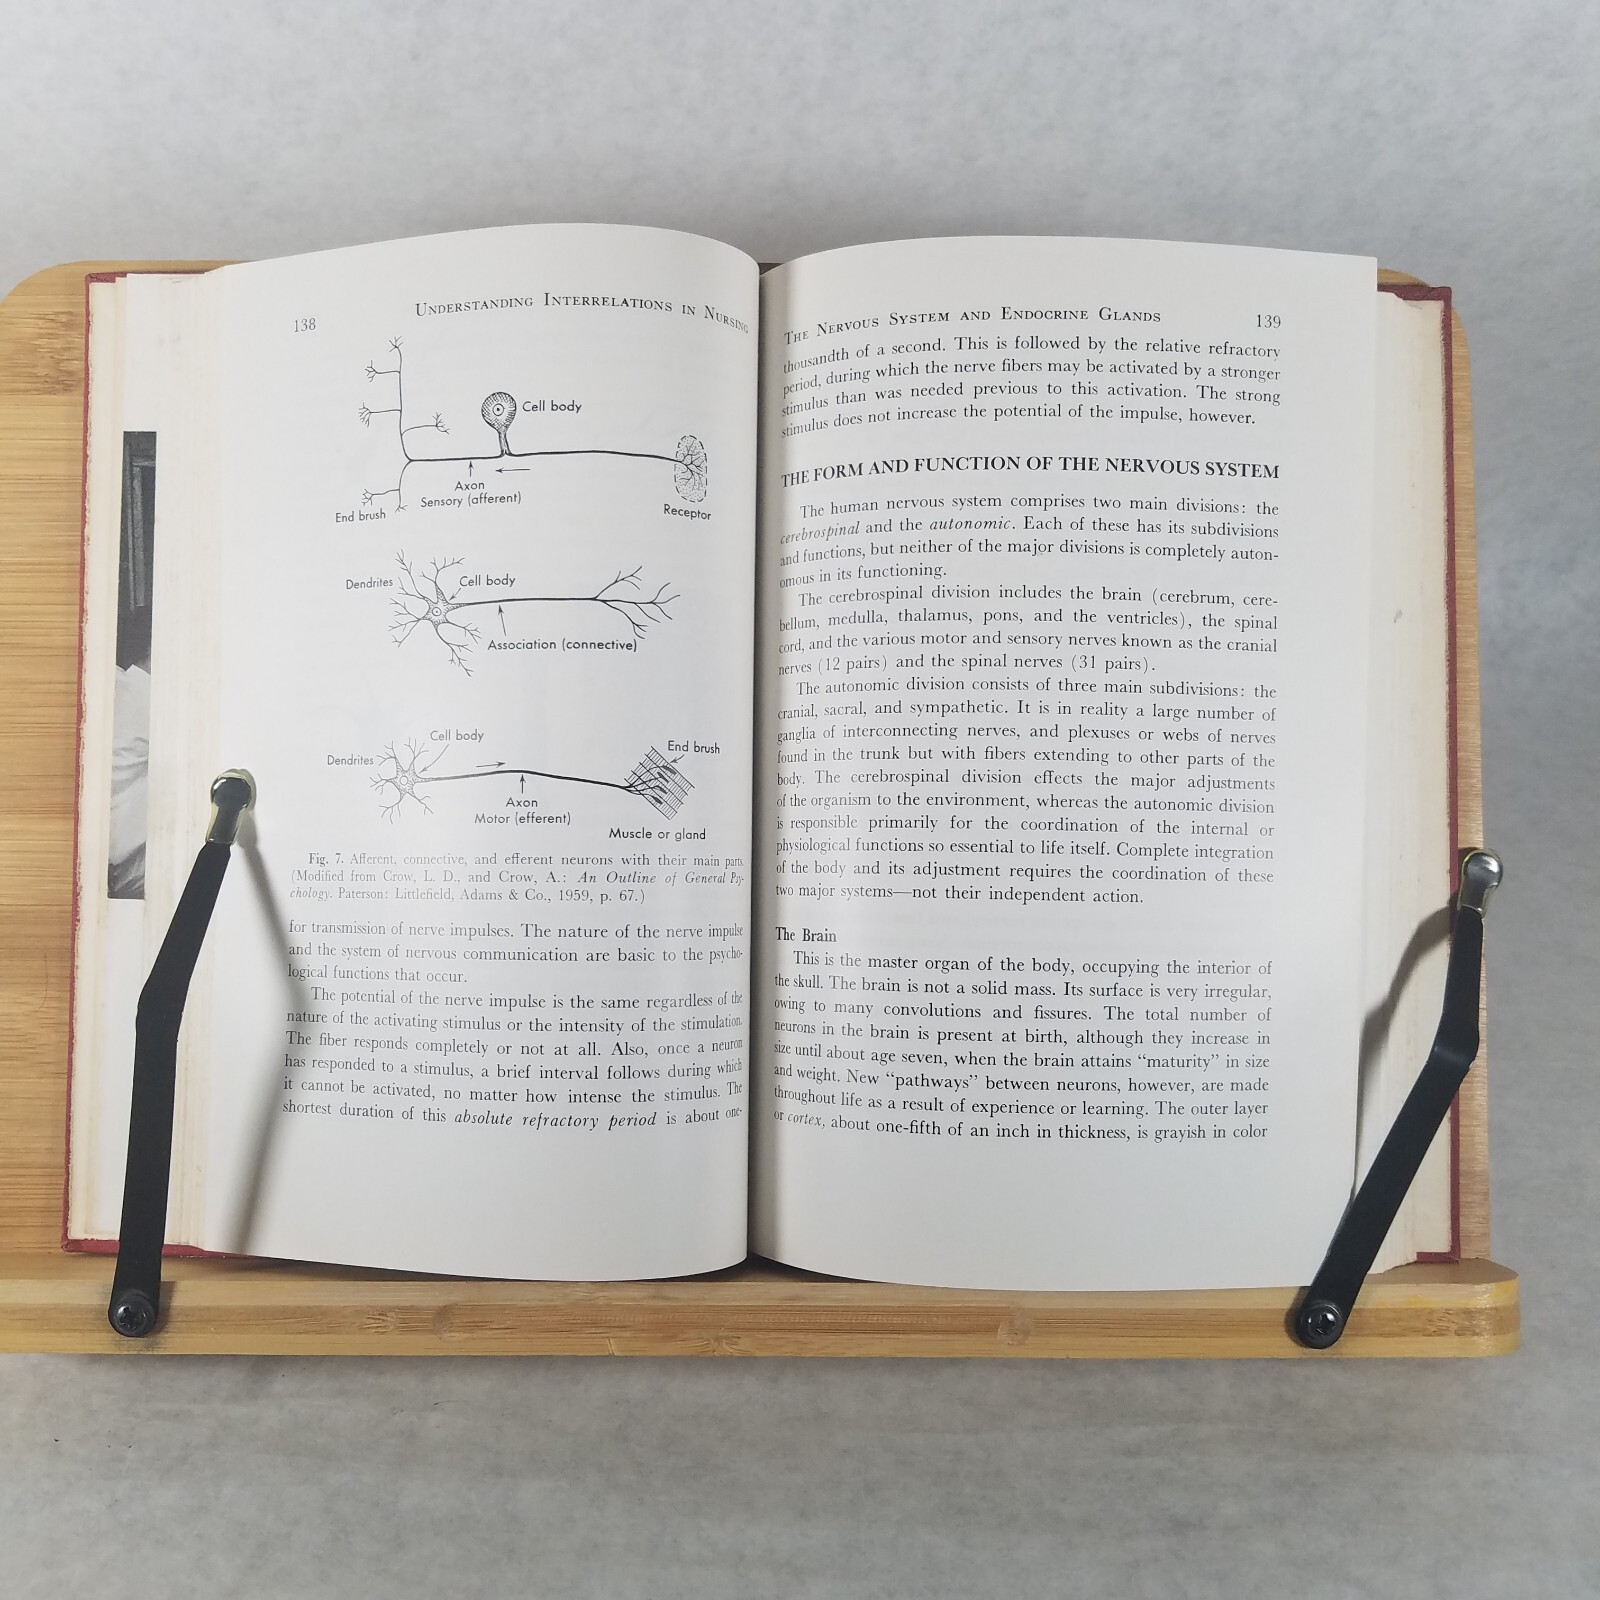 138
UNDERSTANDING INTERRELATIONS IN NURSING
Cell body
Axon
Sensory (afferent)
End brush
Receptor
Dendrites
Cell body
Association (connective)
Cell body
Dendrites
End brush
Axon
Motor (efferent)
Muscle or gland
Fig. 7. Afferent, connective, and efferent neurons with their main parts.
(Modified from Crow, L. D., and Crow, A.: An Outline of General Psy-
chology. Paterson: Littlefield, Adams & Co., 1959, p. 67.)
for transmission of nerve impulses. The nature of the nerve impulse
and the system of nervous communication are basic to the psycho-
logical functions that occur.
The potential of the nerve impulse is the same regardless of the
nature of the activating stimulus or the intensity of the stimulation.
The fiber responds completely or not at all. Also, once a neuron
has responded to a stimulus, a brief interval follows during which
it cannot be activated, no matter how intense the stimulus. The
shortest duration of this absolute refractory period is about one-
THE NERVOUS SYSTEM AND ENDOCRINE GLANDS
139
thousandth of a second. This is followed by the relative refractory
period, during which the nerve fibers may be activated by a stronger
stimulus than was needed previous to this activation. The strong
stimulus does not increase the potential of the impulse, however.
THE FORM AND FUNCTION OF THE NERVOUS SYSTEM
The human nervous system comprises two main divisions: the
cerebrospinal and the autonomic. Each of these has its subdivisions
and functions, but neither of the major divisions is completely auton-
omous in its functioning.
The cerebrospinal division includes the brain (cerebrum, cere-
bellum, medulla, thalamus, pons, and the ventricles), the spinal
cord, and the various motor and sensory nerves known as the cranial
nerves (12 pairs) and the spinal nerves (31 pairs).
The autonomic division consists of three main subdivisions: the
cranial, sacral, and sympathetic. It is in reality a large number of
ganglia of interconnecting nerves, and plexuses or webs of nerves
found in the trunk but with fibers extending to other parts of the
body. The cerebrospinal division effects the major adjustments
of the organism to the environment, whereas the autonomic division
is responsible primarily for the coordination of the internal or
physiological functions so essential to life itself. Complete integration
of the body and its adjustment requires the coordination of these
two major systems—not their independent action.
The Brain
This is the master organ of the body, occupying the interior of
the skull. The brain is not a solid mass. Its surface is very irregular,
owing to many convolutions and fissures. The total number of
neurons in the brain is present at birth, although they increase in
size until about age seven, when the brain attains "maturity" in size
and weight. New "pathways" between neurons, however, are made
throughout life as a result of experience or learning. The outer layer
or cortex, about one-fifth of an inch in thickness, is grayish in color